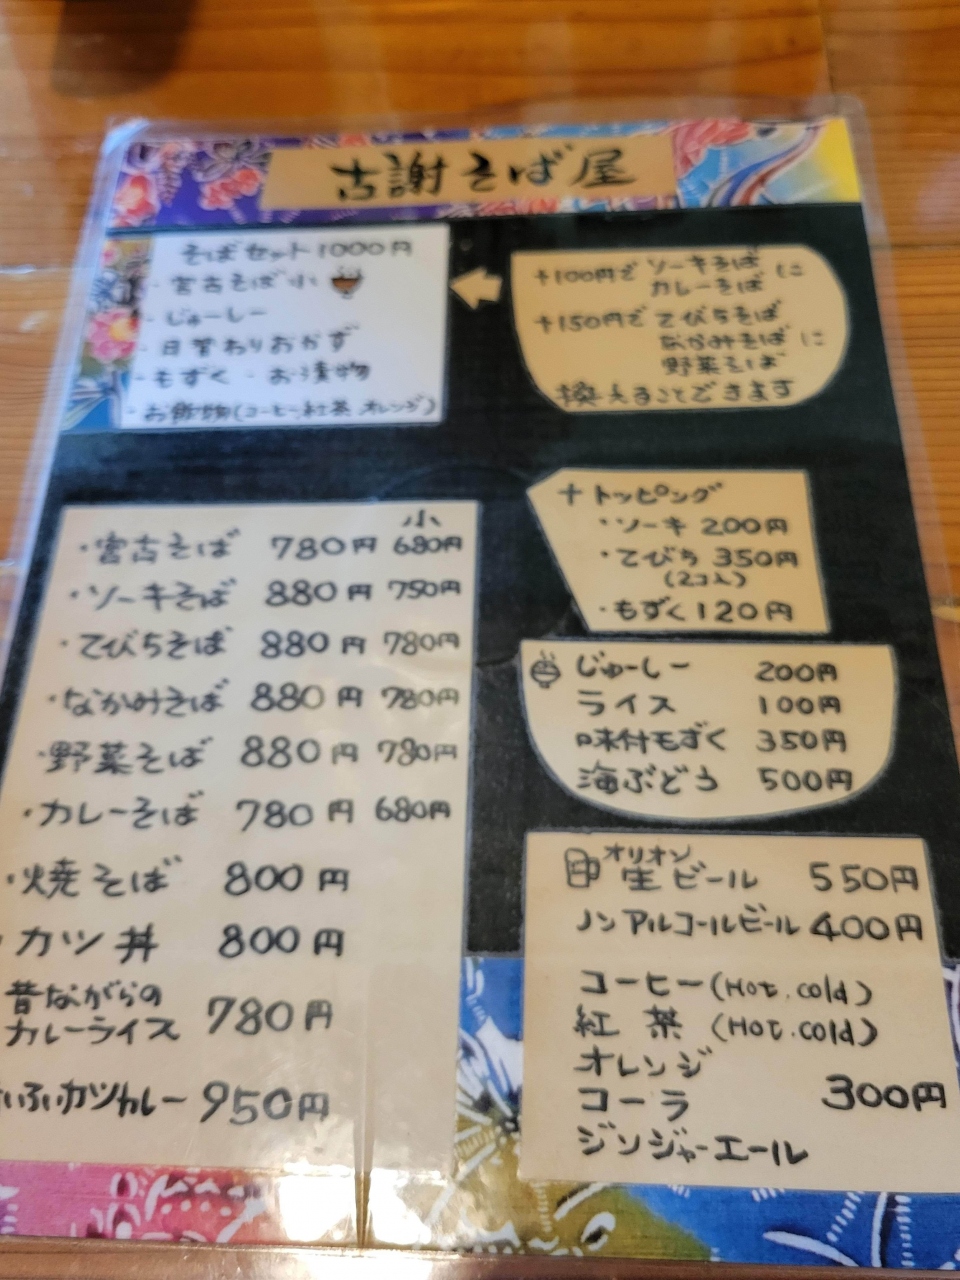 古謝そば屋
そばセット1000円
・宮古そば小
・じゅーしー
・日替わりおかず
・もずく ・お漬物
・お飲物(コーヒー,紅茶,オレンジ)
+100円で ソーキそば
カレーそば に
+150円で てびちそば
なかみそば に
野菜そば
換えることできます
小
・宮古そば 780円 680円
・ソーキそば 880円 750円
・てびちそば 880円 780円
・なかみそば 880円 780円
・野菜そば 880円 780円
・カレーそば 780円 680円
・焼そば 800円
・カツ丼 800円
昔ながらの
カレーライス 780円
カツカレー 950円
+トッピング
・ソーキ 200円
・てびち 350円
(2コ入)
・もずく 120円
じゅーしー 200円
ライス 100円
味付もずく 350円
海ぶどう 500円
オリオン
生ビール 550円
ノンアルコールビール 400円
コーヒー(Hot.cold)
紅茶 (Hot.cold)
オレンジ
コーラ 300円
ジンジャーエール